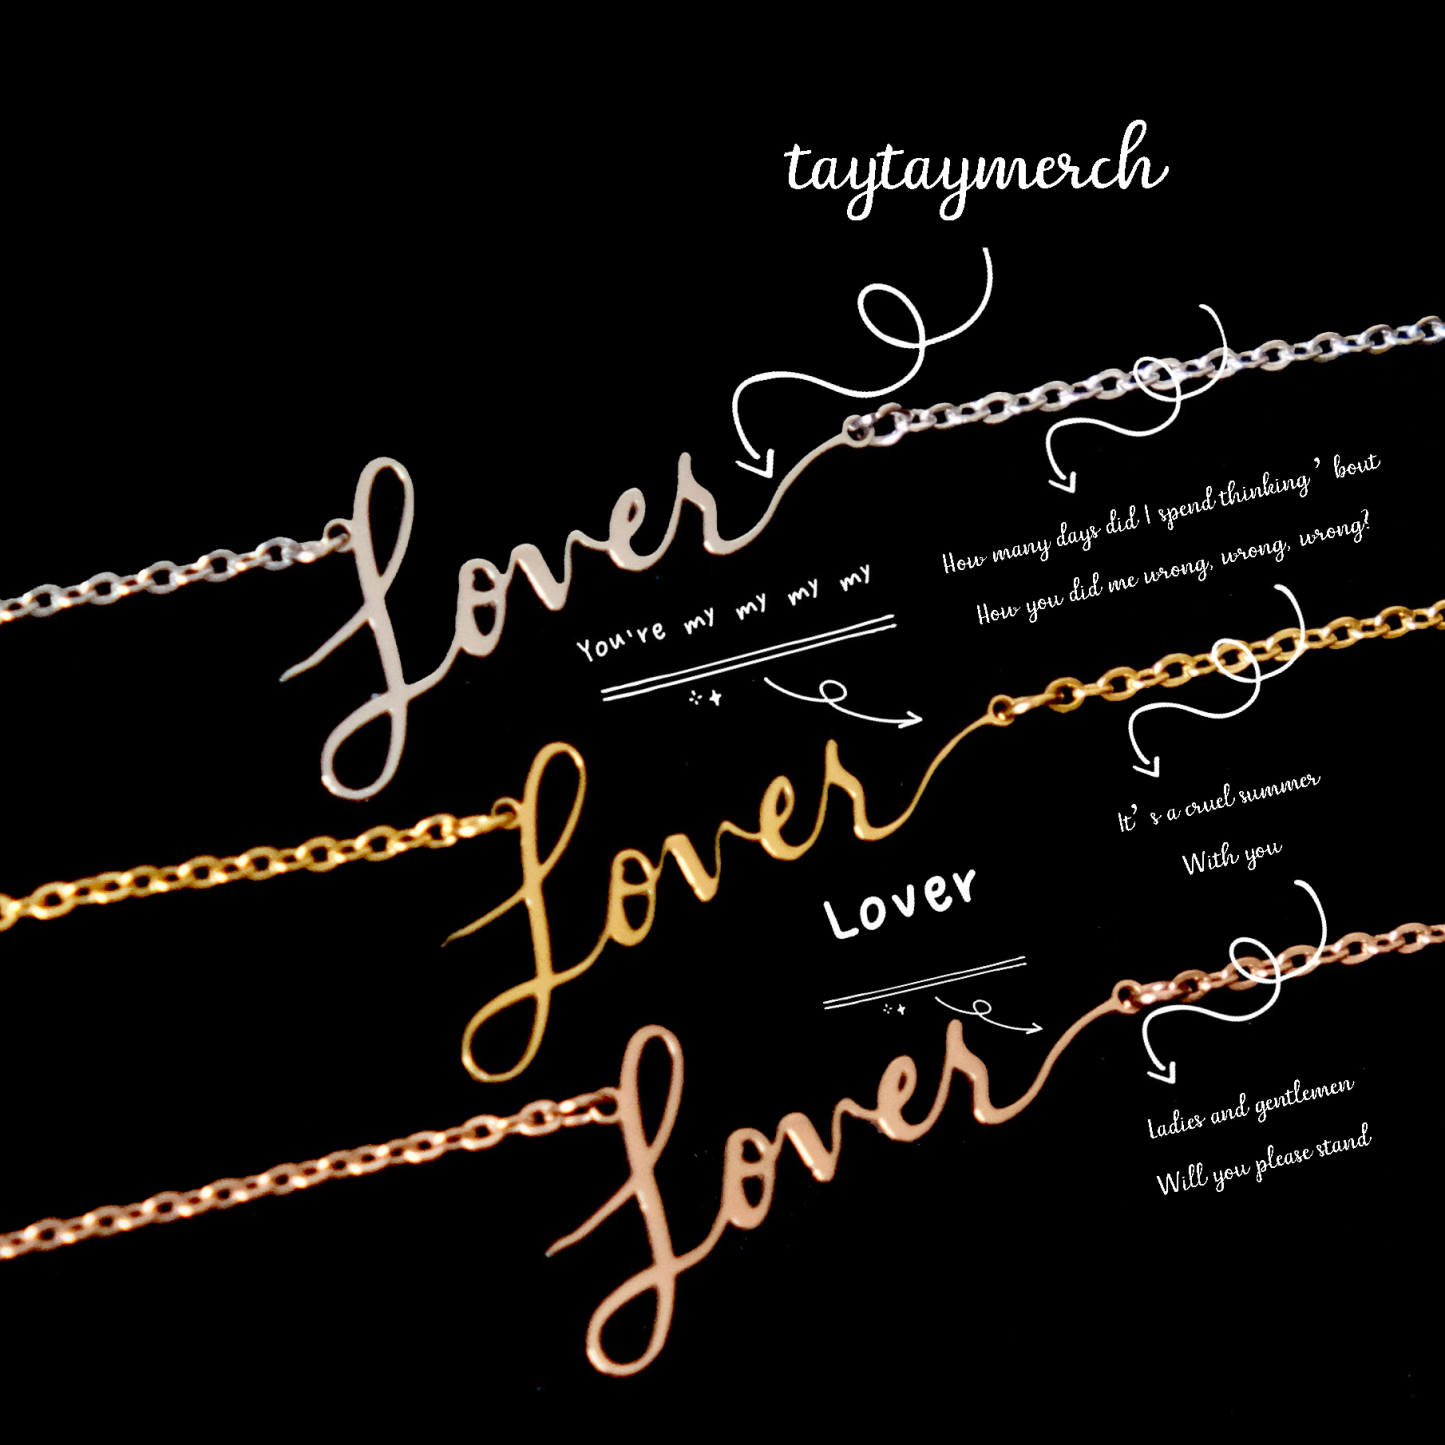 taytaymerch
Lover
How many days did I spend thinking’ bout
How you did me wrong, wrong, wrong?
You're my my my my
Lover
It’ s a cruel summer
With you
Lover
Lover
Ladies and gentlemen
Will you please stand